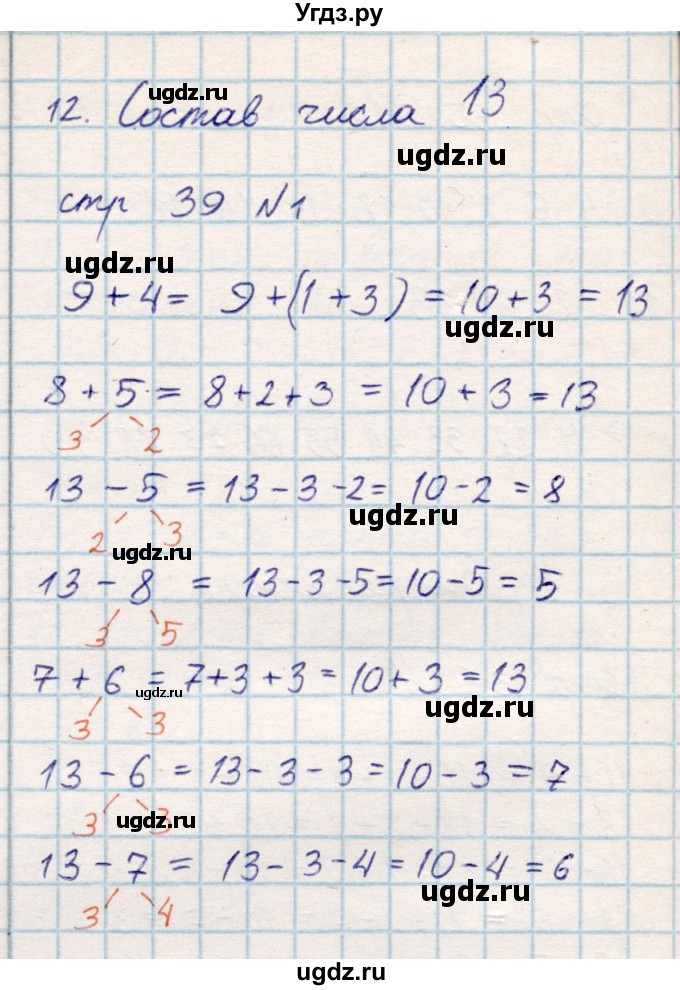 Угдз.ру
ugdz.ru
12. Состав числа 13
ugdz.ru
стр 39 №1
ugdz.ru
9 + 4 = 9 + (1 + 3) = 10 + 3 = 13
ugdz.ru
8 + 5 = 8 + 2 + 3 = 10 + 3 = 13
3 2
13 - 5 = 13 - 3 - 2 = 10 - 2 = 8
ugdz.ru
2 3
ugdz.ru
13 - 8 = 13 - 3 - 5 = 10 - 5 = 5
3 5
7 + 6 = 7 + 3 + 3 = 10 + 3 = 13
ugdz.ru
ugdz.ru
3 3
13 - 6 = 13 - 3 - 3 = 10 - 3 = 7
3 3
ugdz.ru
13 - 7 = 13 - 3 - 4 = 10 - 4 = 6
ugdz.ru
3 4
ugdz.ru